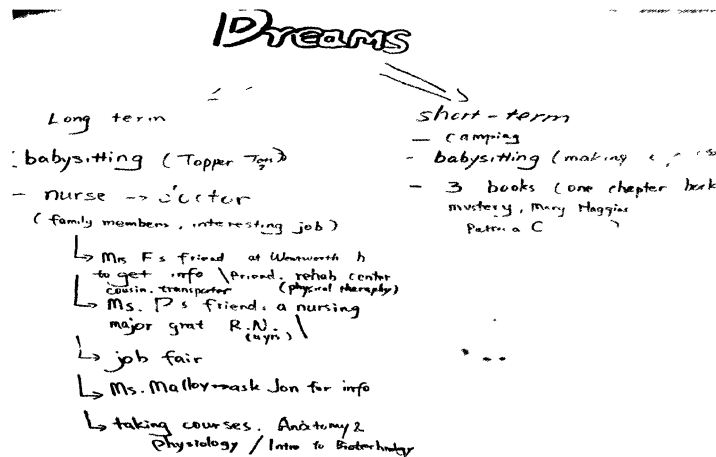 Dreams
Long term
- babysitting (Topper
- nurse → doctor
(family members, interesting job)
↳ Ms F s friend at Wentworth h
to get info \ friend. rehab center
cousin. transporter (physical theraphy)
↳ Ms. P s friend. a nursing
major grat R.N. \
(4yrs)
↳ job fair
↳ Ms. Malloy → ask Jon for info
↳ taking courses. Anatomy &
physiology / Intro to Biotechnology
short-term
- camping
- babysitting (making
- 3 books (one chepter book
mystery, Mary Higgins
C )